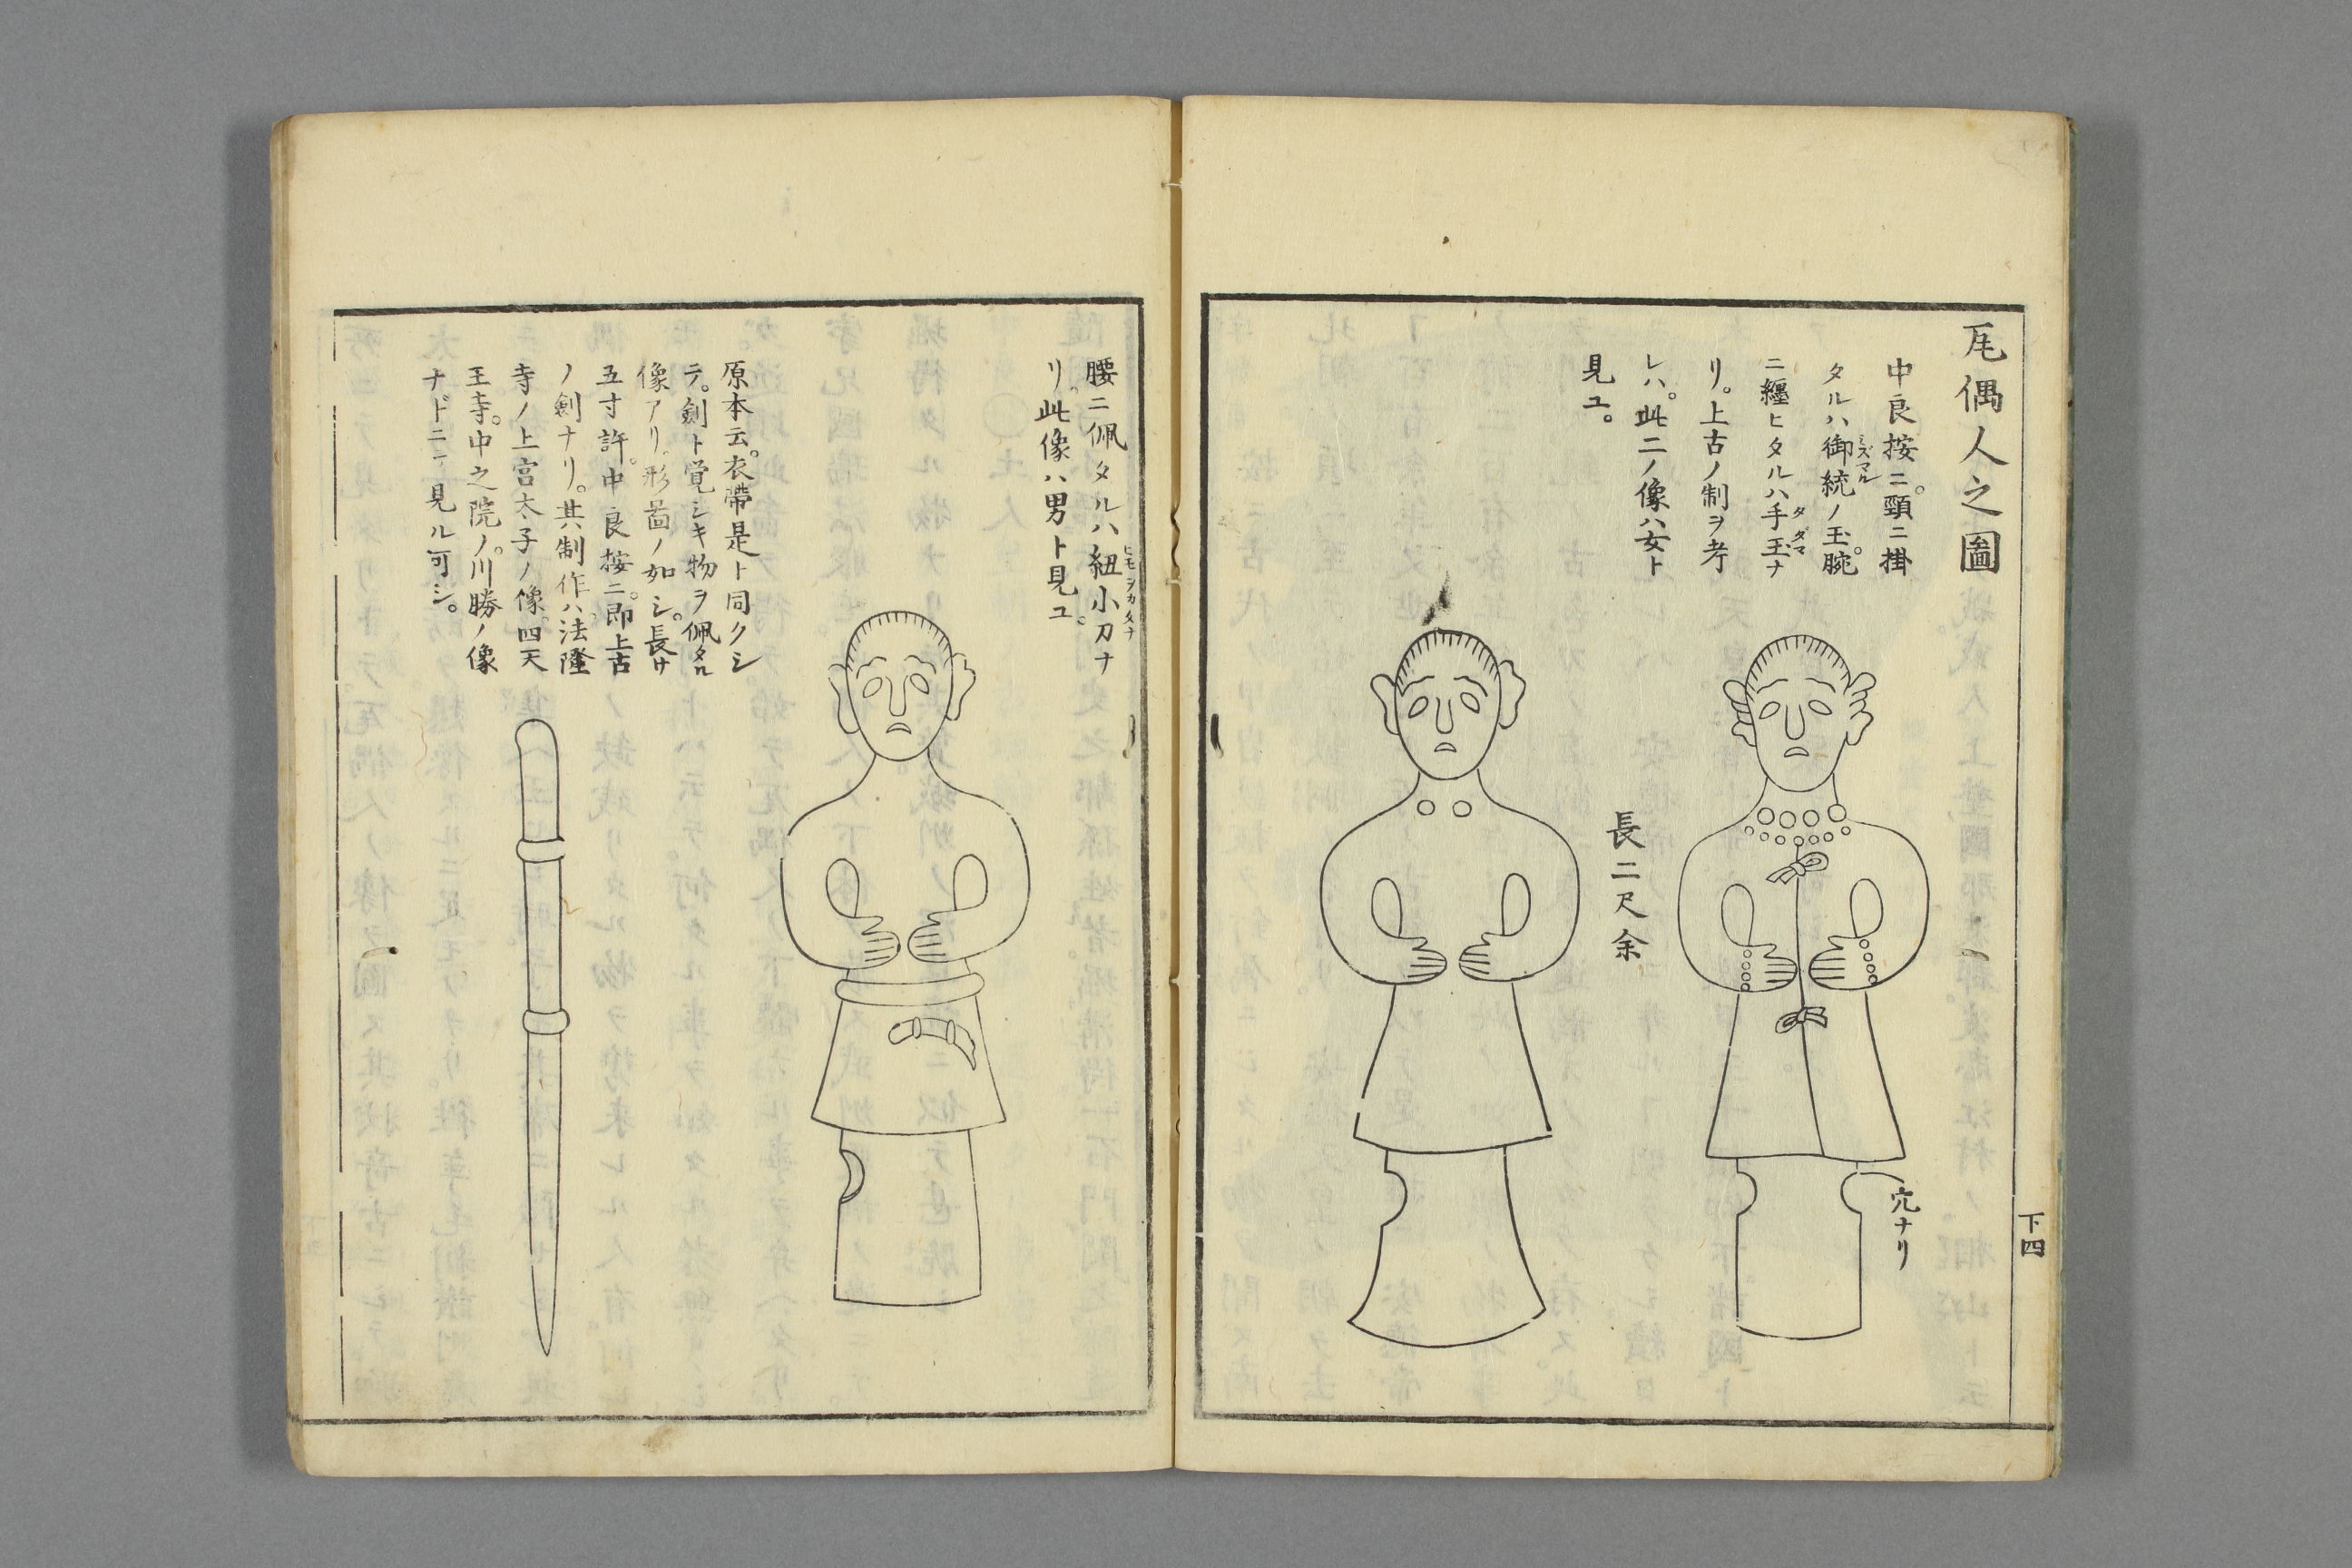 瓦偶人之圖
中良按ニ。頸ニ掛
タルハ御統ノ玉。腕
ミスマル
ニ纏ヒタルハ手玉ナ
タダマ
リ。上古ノ制ヲ考
レハ。此二ノ像ハ女ト
見ユ。
長二尺余
穴ナリ
下四
腰ニ佩タルハ紐小刀ナ
ヒモヲカタナ
リ。此像ハ男ト見ユ。
原本云。衣帶是ト同クシ
テ。劍ト覚シキ物ヲ佩タル
像アリ。形啚ノ如シ。長サ
五寸許。中良按ニ。即上古
ノ劍ナリ。其制作ハ。法隆
寺ノ上宮太子ノ像。四天
王寺。中之院ノ。川勝ノ像
ナドニテ見ル可シ。